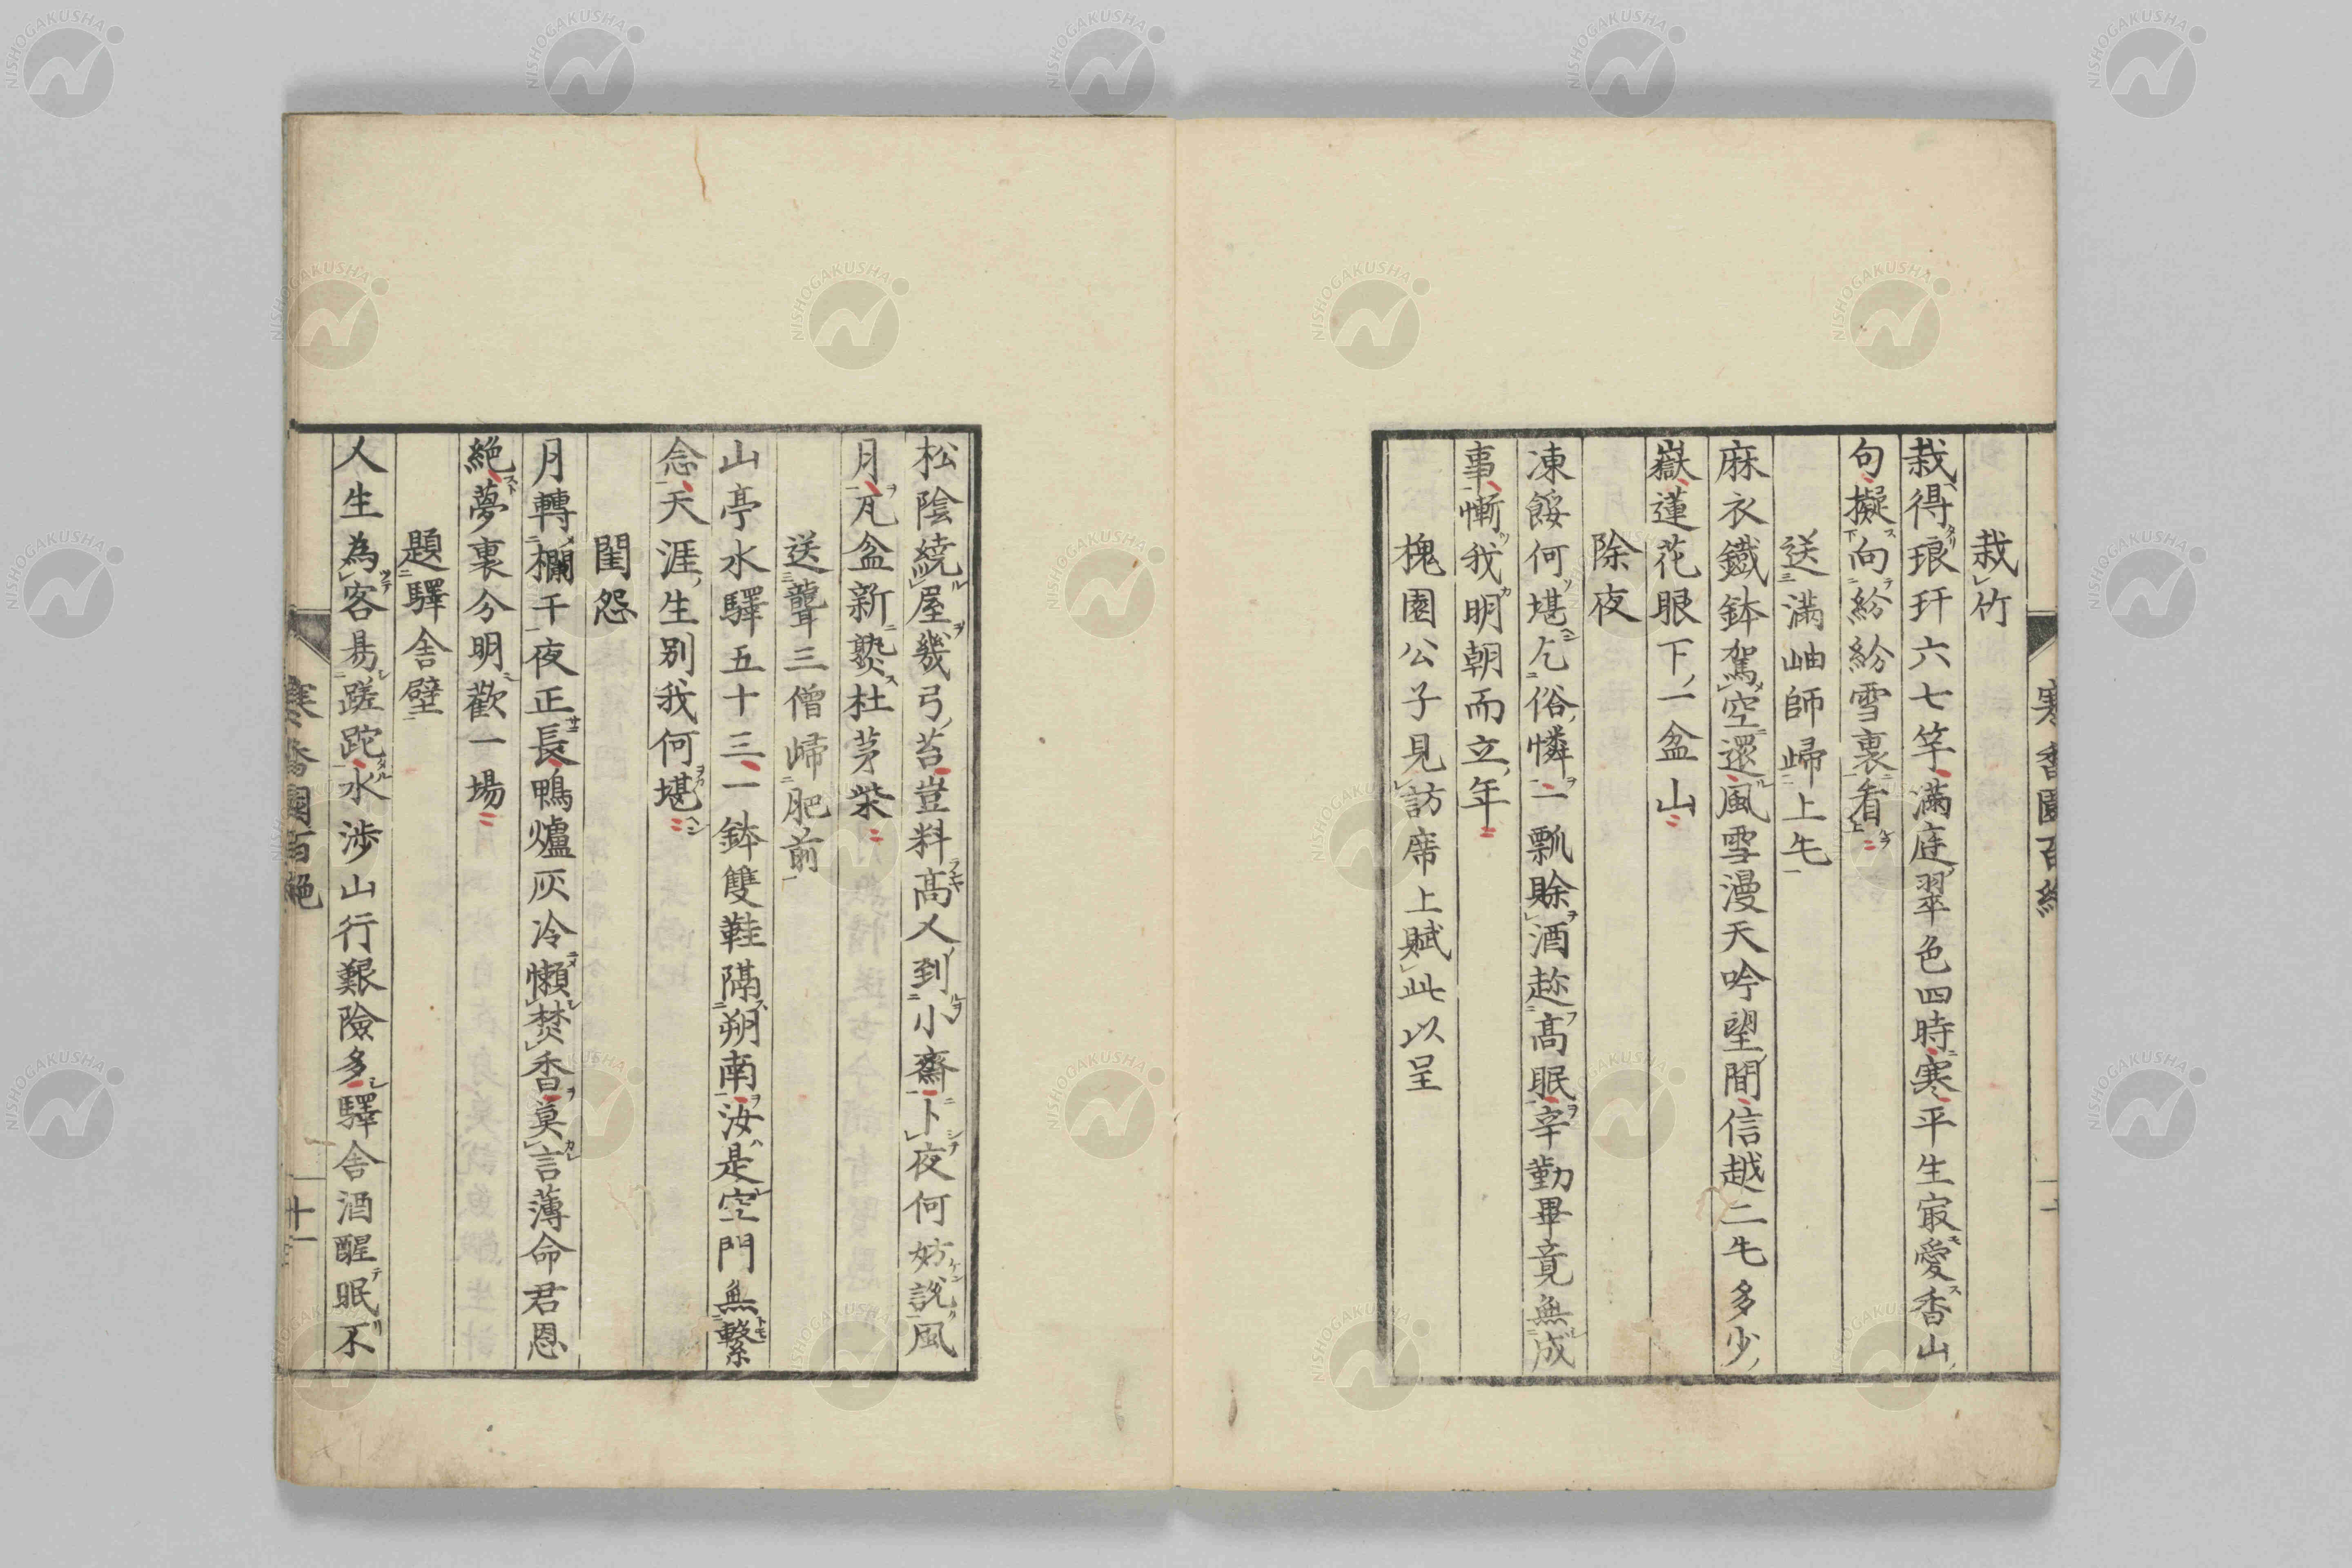 寒香園百絶
栽竹
栽得琅玕六七竿滿庭翠色四時寒平生㝡愛香山
句擬向紛紛雪裏看
送滿岫師歸上毛
麻衣鐵鉢駕空還風雪漫天吟望間信越二毛多少
嶽蓮花眼下一盆山
除夜
凍餒何堪乞俗憐一瓢賒酒趂高眠辛勤畢竟無成
事慚我明朝而立年
槐園公子見訪席上賦此以呈
松陰繞屋幾弓苔豈料高人到小齋卜夜何妨說風
月瓦盆新爇杜茅柴
送聾三僧歸肥前
山亭水驛五十三一鉢雙鞋隔朔南汝是空門無繫
念天涯生别我何堪
閨怨
月轉欄干夜正長鴨爐灰冷懶焚香莫言薄命君恩
絶夢裏分明歡一場
題驛舍壁
人生為客易蹉跎水涉山行艱險多驛舍酒醒眠不
寒香園百絶
十一
NISHOGAKUSHA